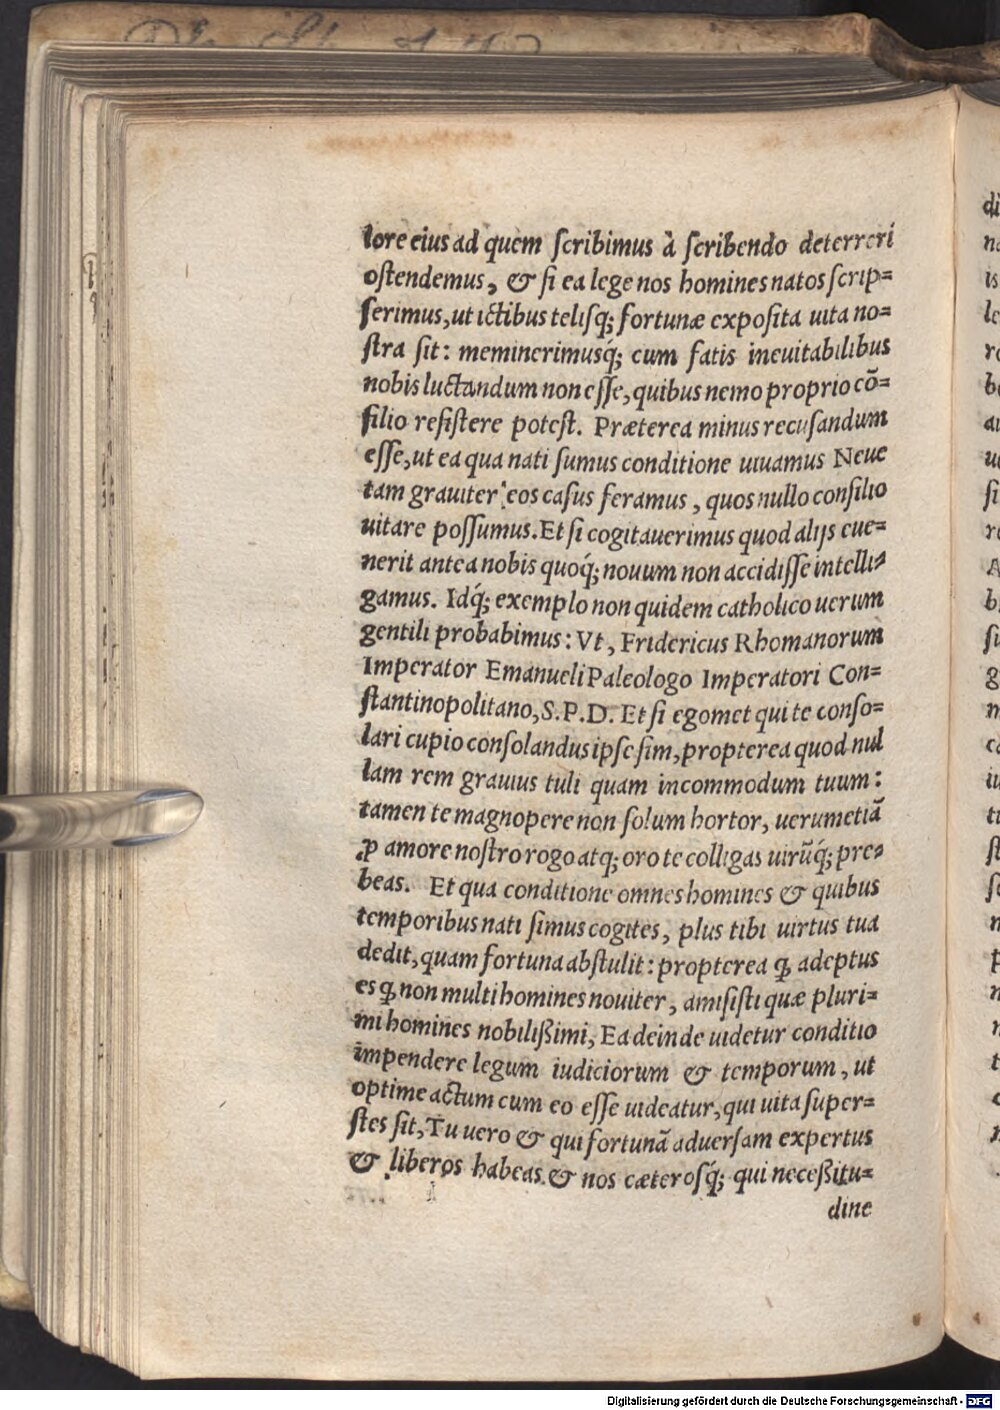 lore eius ad quem scribimus à scribendo deterreri
ostendemus, & si ea lege nos homines natos scrip=
serimus, ut ictibus telisq́; fortunæ exposita uita no=
stra sit: meminerimusq́; cum fatis ineuitabilibus
nobis luctandum non esse, quibus nemo proprio cō=
silio resistere potest. Præterea minus recusandum
esse, ut ea qua nati sumus conditione uiuamus Neue
tam grauiter eos casus feramus, quos nullo consilio
uitare possumus. Et si cogitauerimus quod alijs eue=
nerit antea nobis quoq́; nouum non accidisse intelli=
gamus. Idq́; exemplo non quidem catholico uerum
gentili probabimus: Vt, Fridericus Rhomanorum
Imperator Emanueli Paleologo Imperatori Con=
stantinopolitano, S.P.D. Et si egomet qui te conso=
lari cupio consolandus ipse sim, propterea quod nul
lam rem grauius tuli quam incommodum tuum:
tamen te magnopere non solum hortor, uerumetiā
ꝑ amore nostro rogo atq; oro te colligas uirūq́; pre=
beas. Et qua conditione omnes homines & quibus
temporibus nati simus cogites, plus tibi uirtus tua
dedit, quam fortuna abstulit: propterea ꝙ adeptus
es ꝙ non multi homines nouiter, amisisti quæ pluri=
mi homines nobilißimi, Ea deinde uidetur conditio
impendere legum iudiciorum & temporum, ut
optime actum cum eo esse uideatur, qui uita super=
stes sit, Tu uero & qui fortunā aduersam expertus
& liberos habeas. & nos cæterosq́; qui neceßitu=
dine
Digitalisierung gefördert durch die Deutsche Forschungsgemeinschaft - DFG